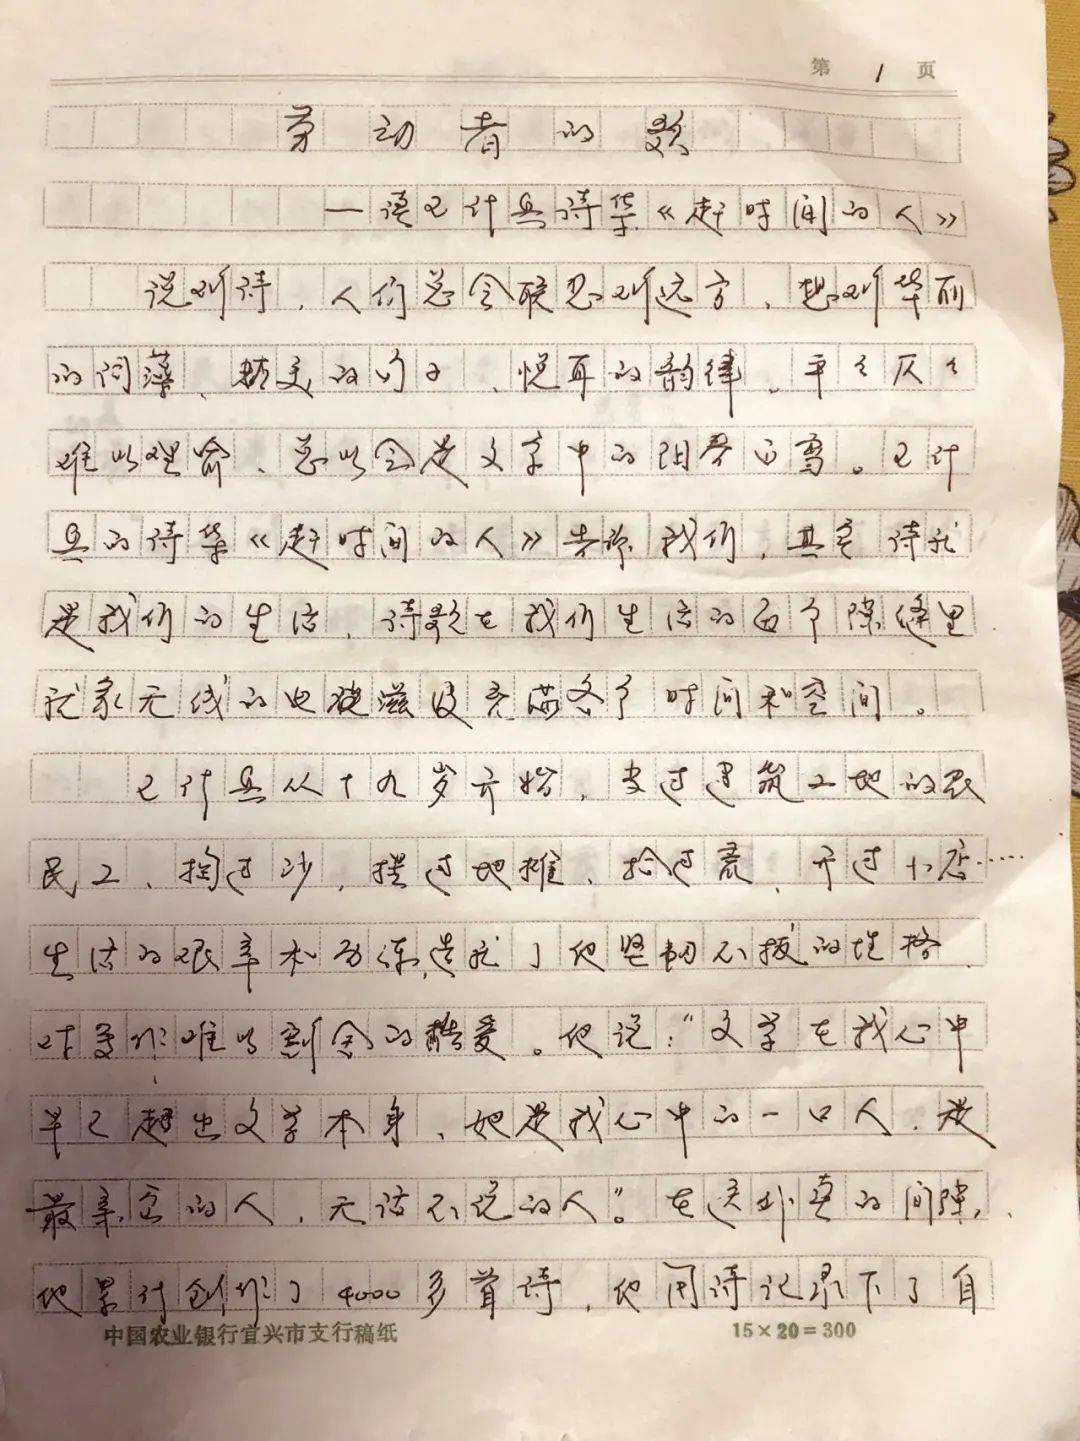 第 1 页
劳动者的歌
—读王计兵诗集《赶时间的人》
说到诗，人们总会联想到远方，想到华丽
的词藻、精美的句子、悦耳的韵律，平平仄仄
难以理喻、总以会是文字中的阳春白雪。王计
兵的诗集《赶时间的人》告诉我们，其实诗就
是我们的生活，诗歌在我们生活的每个隙缝里
就象无线的电磁滋波充满各个时间和空间。
王计兵从十九岁开始，当过建筑工地的农
民工、捞过沙，摆过地摊、拾过荒、开过小店……
生活的艰辛和历练，造就了他坚韧不拔的性格，
对写作难以割舍的酷爱。他说："文学在我心中
早已超出文学本身，她是我心中的一口人，是
最亲密的人，无话不说的人"。在送外卖的间隙，
他累计创作了4000多首诗，他用诗记录下了自
中国农业银行宜兴市支行稿纸
15×20=300